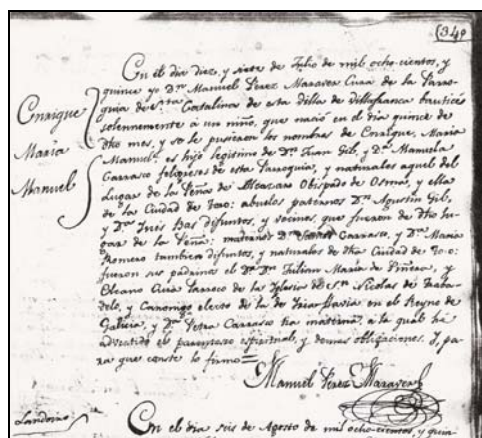 (349
En el dia diez, y siete de Julio de mil ocho-cientos, y
quince yo Dn. Manuel Perez Maraver Cura de la Parro-
quia de Sta. Catalina de esta Villa de Villafranca bautizé
solemnemente à un niño, que nació en el dia quince de
dho mes, y se le pusieron los nombres de Enrique, Maria
Manuel: es hijo legitimo de Dn. Juan Gil, y Da. Manuela
Carrasco feligreses de esta Parroquia, y naturales aquel del
Lugar de la Peña de Alcazar Obispado de Osma, y ella
de la Ciudad de Toro: abuelos paternos Dn. Agustin Gil,
y Da. Inés Bas difuntos, y vecinos, que fueron de dho Lu-
gar de la Peña: maternos Dn. Carrasco, y Da. Maria
Romero tambien difuntos, y naturales de dha Ciudad de Toro:
fueron sus padrinos el Dn. Julian Maria de Piñera, y
Cura Parroco de la Iglesia de Sn. Nicolas de
y Canonigo electo de la de en el Reyno de
Galicia, y Da. Petra Carrasco tia materna, a la qual hé
advertido el parentesco espiritual, y demas obligaciones. Y, pa-
ra que conste lo firmo=
Enrique
Maria
Manuel
Manuel Perez Maraver
En el dia seis de Agosto de mil ocho-cientos, y quin-